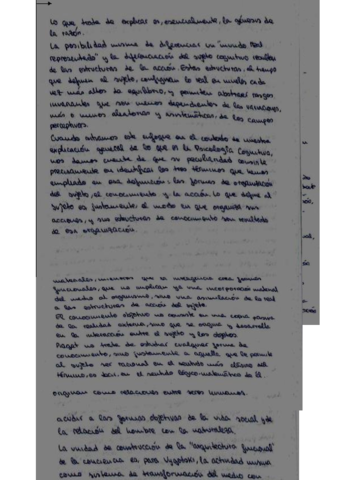 Lo que trata de explicar es, esencialmente, la génesis de
la razón.
La posibilidad misma de diferenciar un "mundo real
representado" y la diferenciación del sujeto cognitivo resultan
de las estructuras de la acción. Estas estructuras, al tiempo
que definen al sujeto, configuran lo real en niveles cada
vez más altos de equilibrio, y permiten abstraer rasgos
invariantes que son menos dependientes de las variaciones,
más o menos aleatorias y asistemáticas, de los campos
perceptivos.
Cuando situamos este enfoque en el contexto de nuestra
explicación general de lo que es la Psicología Cognitiva,
nos damos cuenta de que su peculiaridad consiste
precisamente en identificar los tres términos que hemos
empleado en esa definición: las formas de organización
del sujeto, el conocimiento y la acción. Lo que define al
sujeto es justamente el modo en que organiza sus
acciones, y sus estructuras de conocimiento son resultado
de esa organización.
materiales, mientras que la inteligencia crea formas
funcionales, que no implican ya una incorporación material
del medio al organismo, sino una asimilación de lo real
a las estructuras de acción del sujeto.
El conocimiento objetivo no consiste en una copia
de la realidad externa, sino que se origina y desarrolla
en la interacción entre el sujeto y los objetos.
Piaget no trata de estudiar cualquier forma de
conocimiento, sino justamente a aquella que le permite
al sujeto ser racional en el sentido más clásico del
término, es decir, en el sentido lógico-matemático de él.
originan como relaciones entre seres humanos.
acudir a las formas objetivas de la vida social y de
la relación del hombre con la naturaleza.
La unidad de construcción de la "arquitectura funcional"
de la conciencia es para Vygotski, la actividad misma
como sistema de transformación del medio con